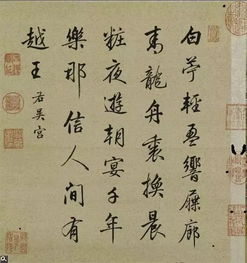 白苧輕盈響屧廊
春龍舟裘換晨
粧夜遊朝宴千年
樂那信人間有
越王
右吳宮